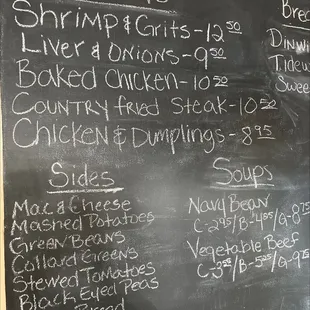 Shrimp & Grits - 12 50
Liver & Onions - 9 50
Baked Chicken - 10 50
Country Fried Steak - 10 50
Chicken & Dumplings - 8 95
Brea
Dinn
Tidew
Swee
Sides
Mac & Cheese
Mashed Potatoes
Green Beans
Collard Greens
Stewed Tomatoes
Black Eyed Peas
Bread
Soups
Navy Bean
C-2 95/B-4 95/Q-8 75
Vegetable Beef
C-3 25/B-5 25/Q-9 75